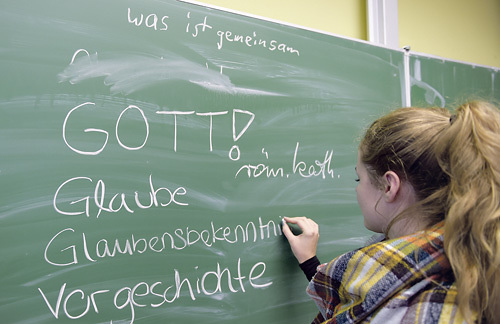 was ist gemeinsam
GOTT!
röm. kath.
Glaube
Glaubensbekenntni
Vorgeschichte